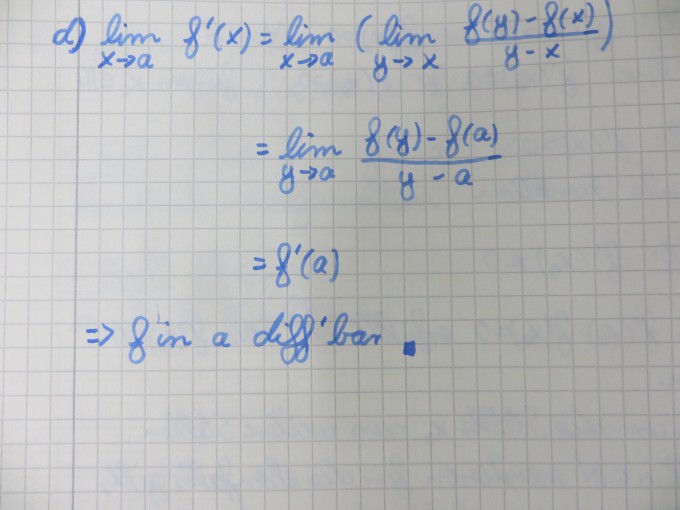 d) lim_{x→a} f'(x) = lim_{x→a} ( lim_{y→x} (f(y) - f(x))/(y - x) )
= lim_{y→a} (f(y) - f(a))/(y - a)
= f'(a)
=> f in a diff'bar ■